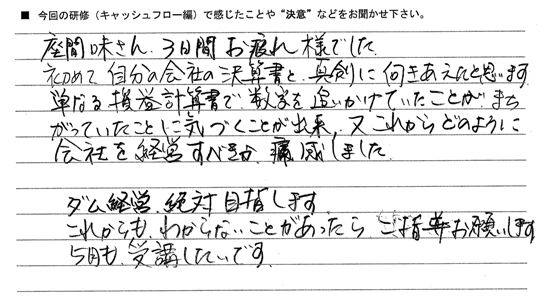 ■ 今回の研修（キャッシュフロー編）で感じたことや“決意”などをお聞かせ下さい。
座間味さん、3日間お疲れ様でした
初めて自分の会社の決算書と、真剣に向きあえたと思います
単なる損益計算書で数字を追いかけていたことが、まち
がっていたことに気づくことが出来、又これからどのように
会社を経営すべきか、痛感しました
ダム経営、絶対目指します
これからも、わからないことがあったら ご指導お願いします
5月も、受講したいです。